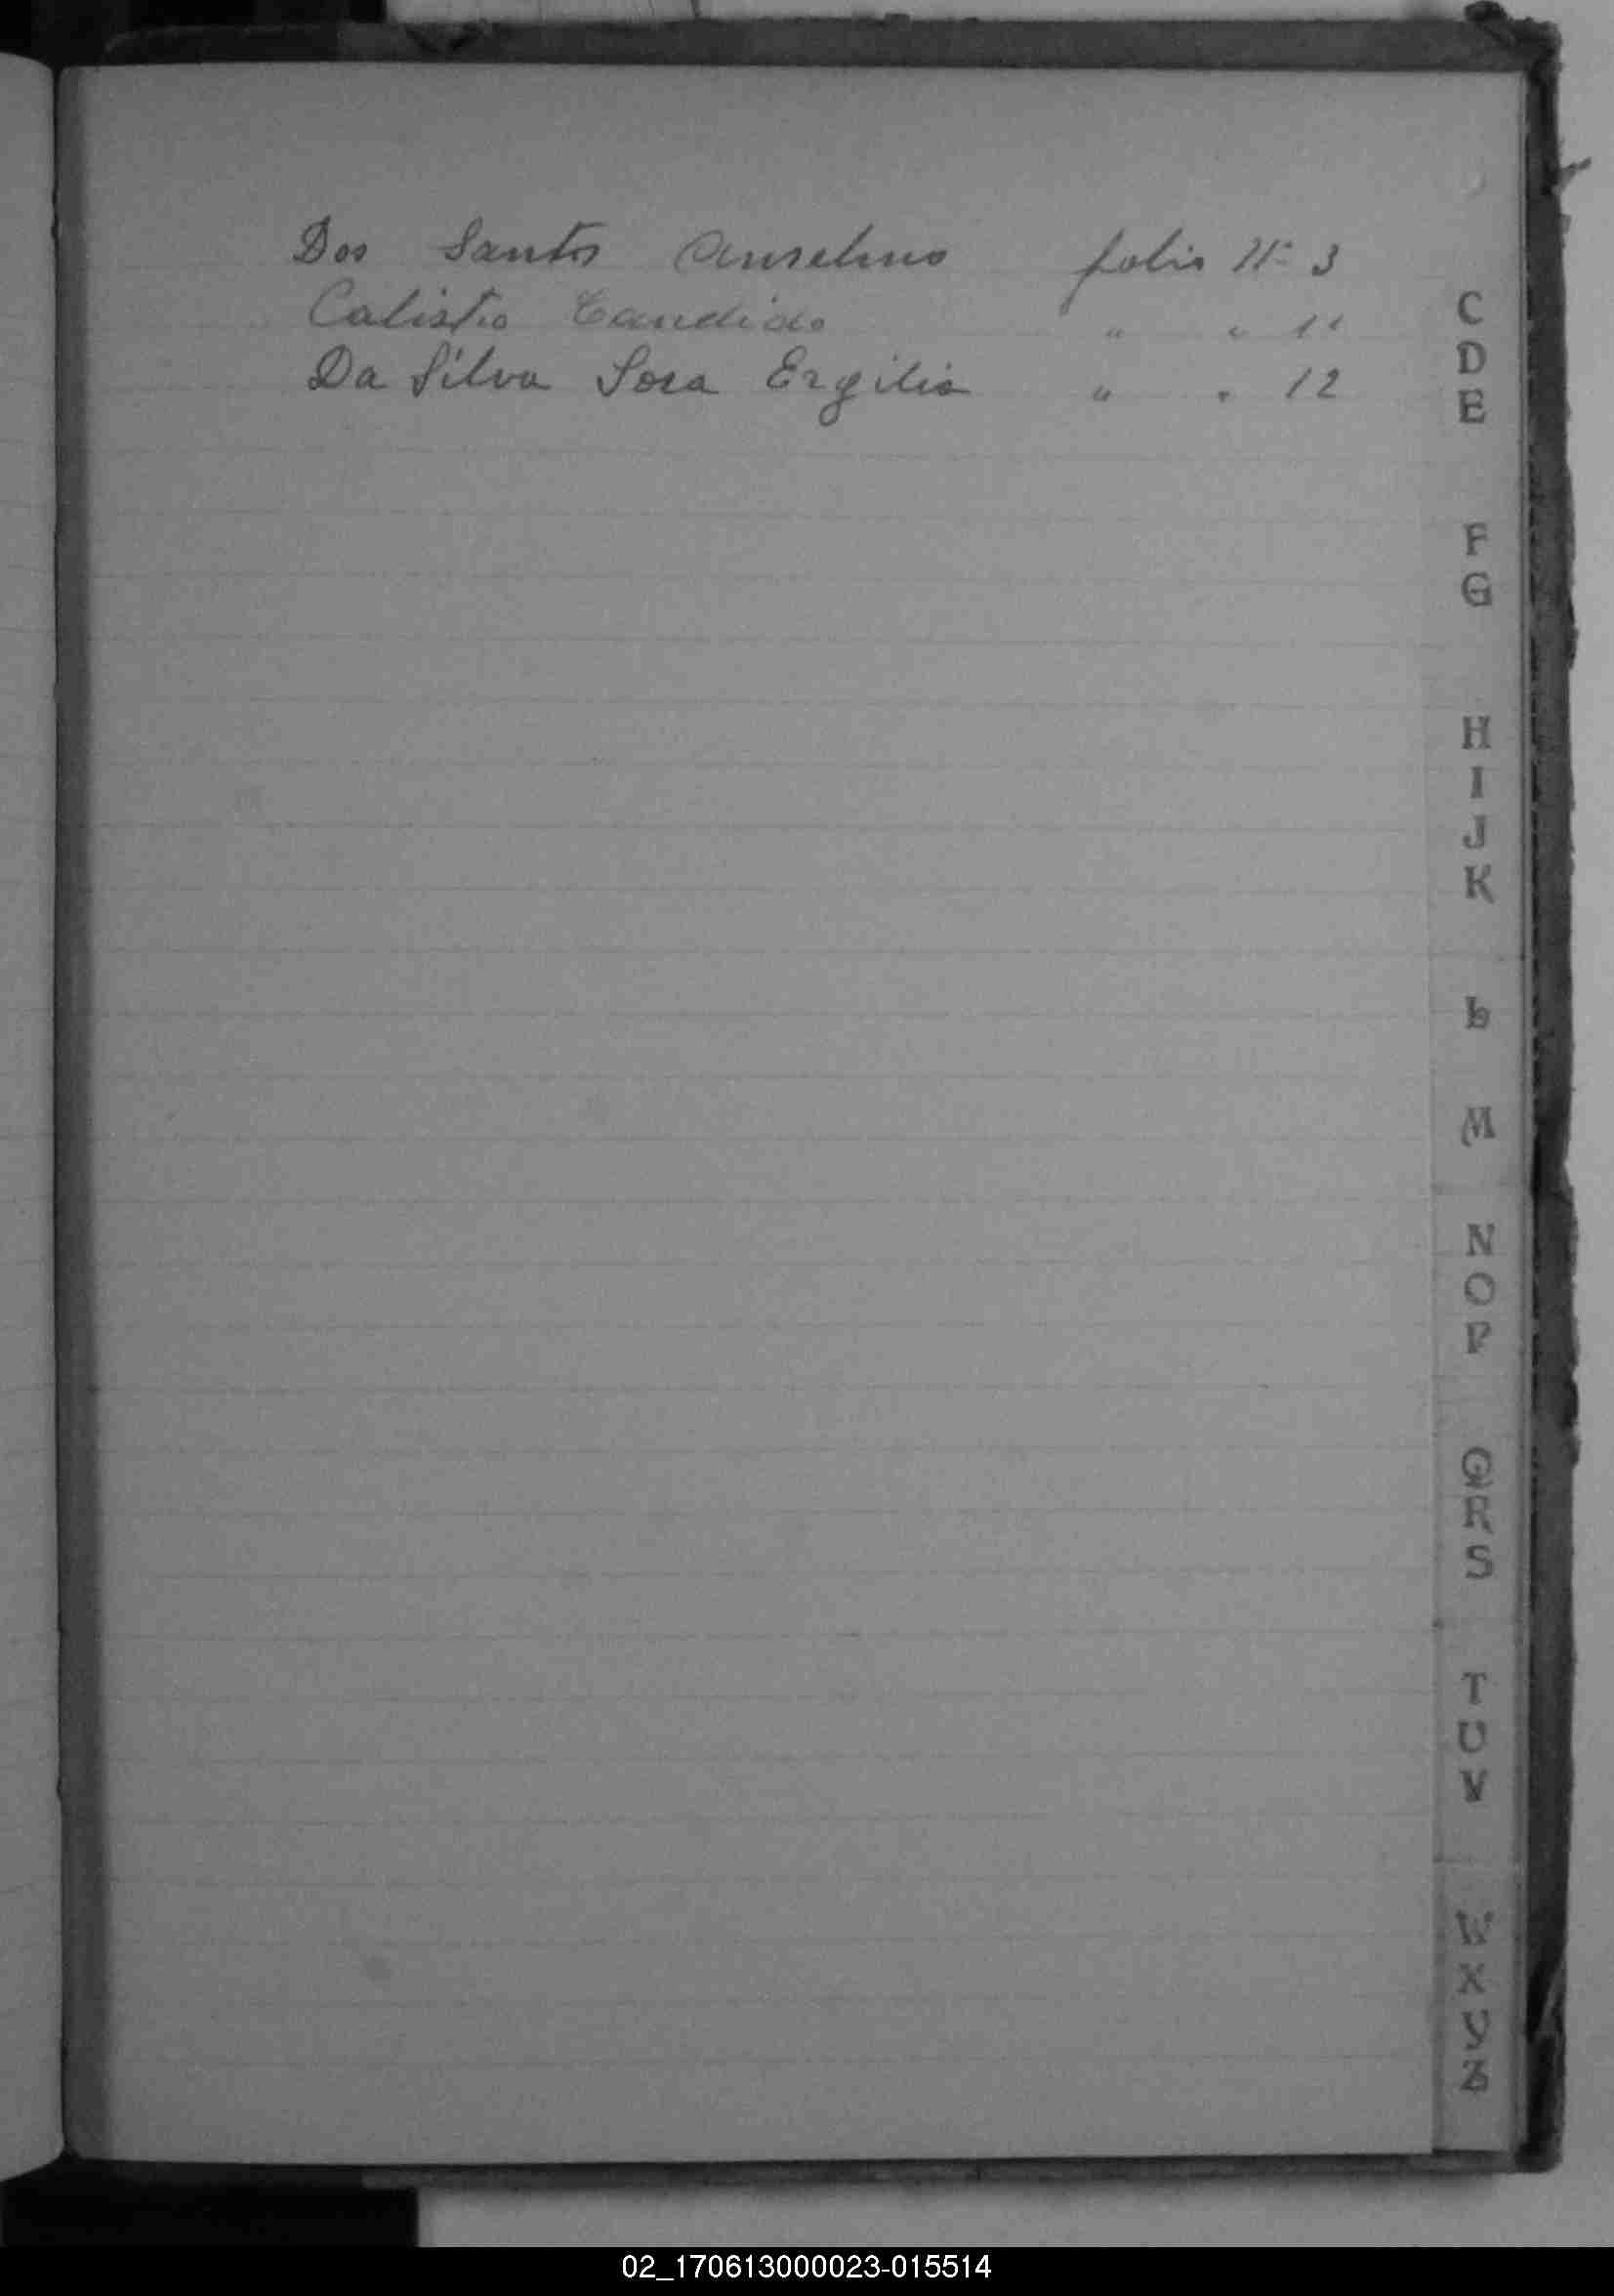 Dos Santos Anselmo folio Nº 3
Calistro Candido " " 11
Da Silva Sosa Ergilio " " 12
C
D
E
F
G
H
I
J
K
L
M
N
O
P
Q
R
S
T
U
V
W
X
Y
Z
02_170613000023-015514